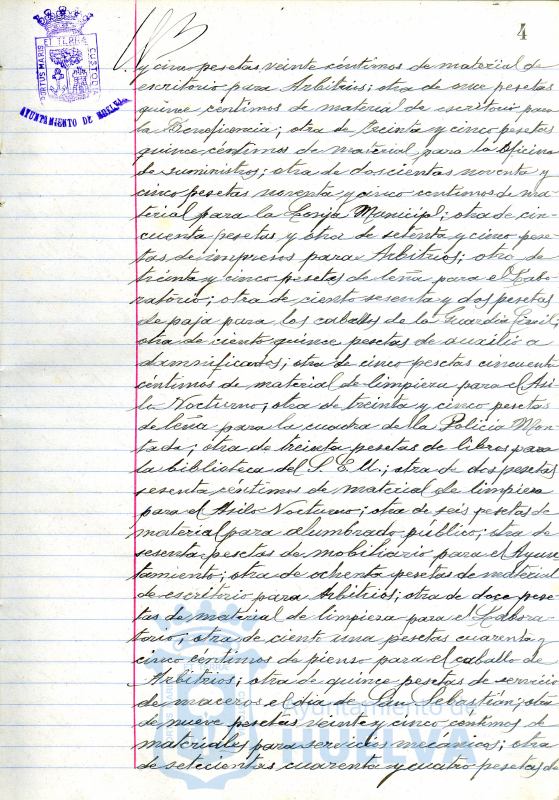 4
PORTUS MARIS ET TERRÆ CUSTODIA
AYUNTAMIENTO DE HUELVA
y cinco pesetas veinte céntimos de material de
escritorio para Arbitrios; otra de once pesetas
quince céntimos de material de escritorio para
la Beneficencia; otra de treinta y cinco pesetas
quince céntimos de material para la Oficina
de suministros; otra de doscientas noventa y
cinco pesetas noventa y cinco centimos de ma
terial para la Lonja Municipal; otra de cin
cuenta pesetas y otra de setenta y cinco pese
tas de impresos para Arbitrios; otra de
treinta y cinco pesetas de leña para el Labo
ratorio; otra de ciento sesenta y dos pesetas
de paja para los caballos de la Guardia Civil;
otra de ciento quince pesetas de auxilio a
damnificados; otra de cinco pesetas cincuenta
céntimos de material de limpieza para el Asi
lo Nocturno; otra de treinta y cinco pesetas
de leña para la cuadra de la Policía Mon
tada; otra de treinta pesetas de libros para
la biblioteca del S.E.U.; otra de dos pesetas
sesenta céntimos de material de limpieza
para el Asilo Nocturno; otra de seis pesetas de
material para alumbrado público; otra de
sesenta pesetas de mobiliario para el Ayun
tamiento; otra de ochenta pesetas de material
de escritorio para Arbitrios; otra de doce pese
tas de material de limpieza para el Labora
torio; otra de ciento una pesetas cuarenta y
cinco céntimos de pienso para el caballo de
Arbitrios; otra de quince pesetas de servicio
de maceros el día de San Sebastián; otra
de nueve pesetas veinte y cinco centimos de
materiales para servicios mecánicos; otra
de setecientas cuarenta y cuatro pesetas de
Ayuntamiento de
HUELVA